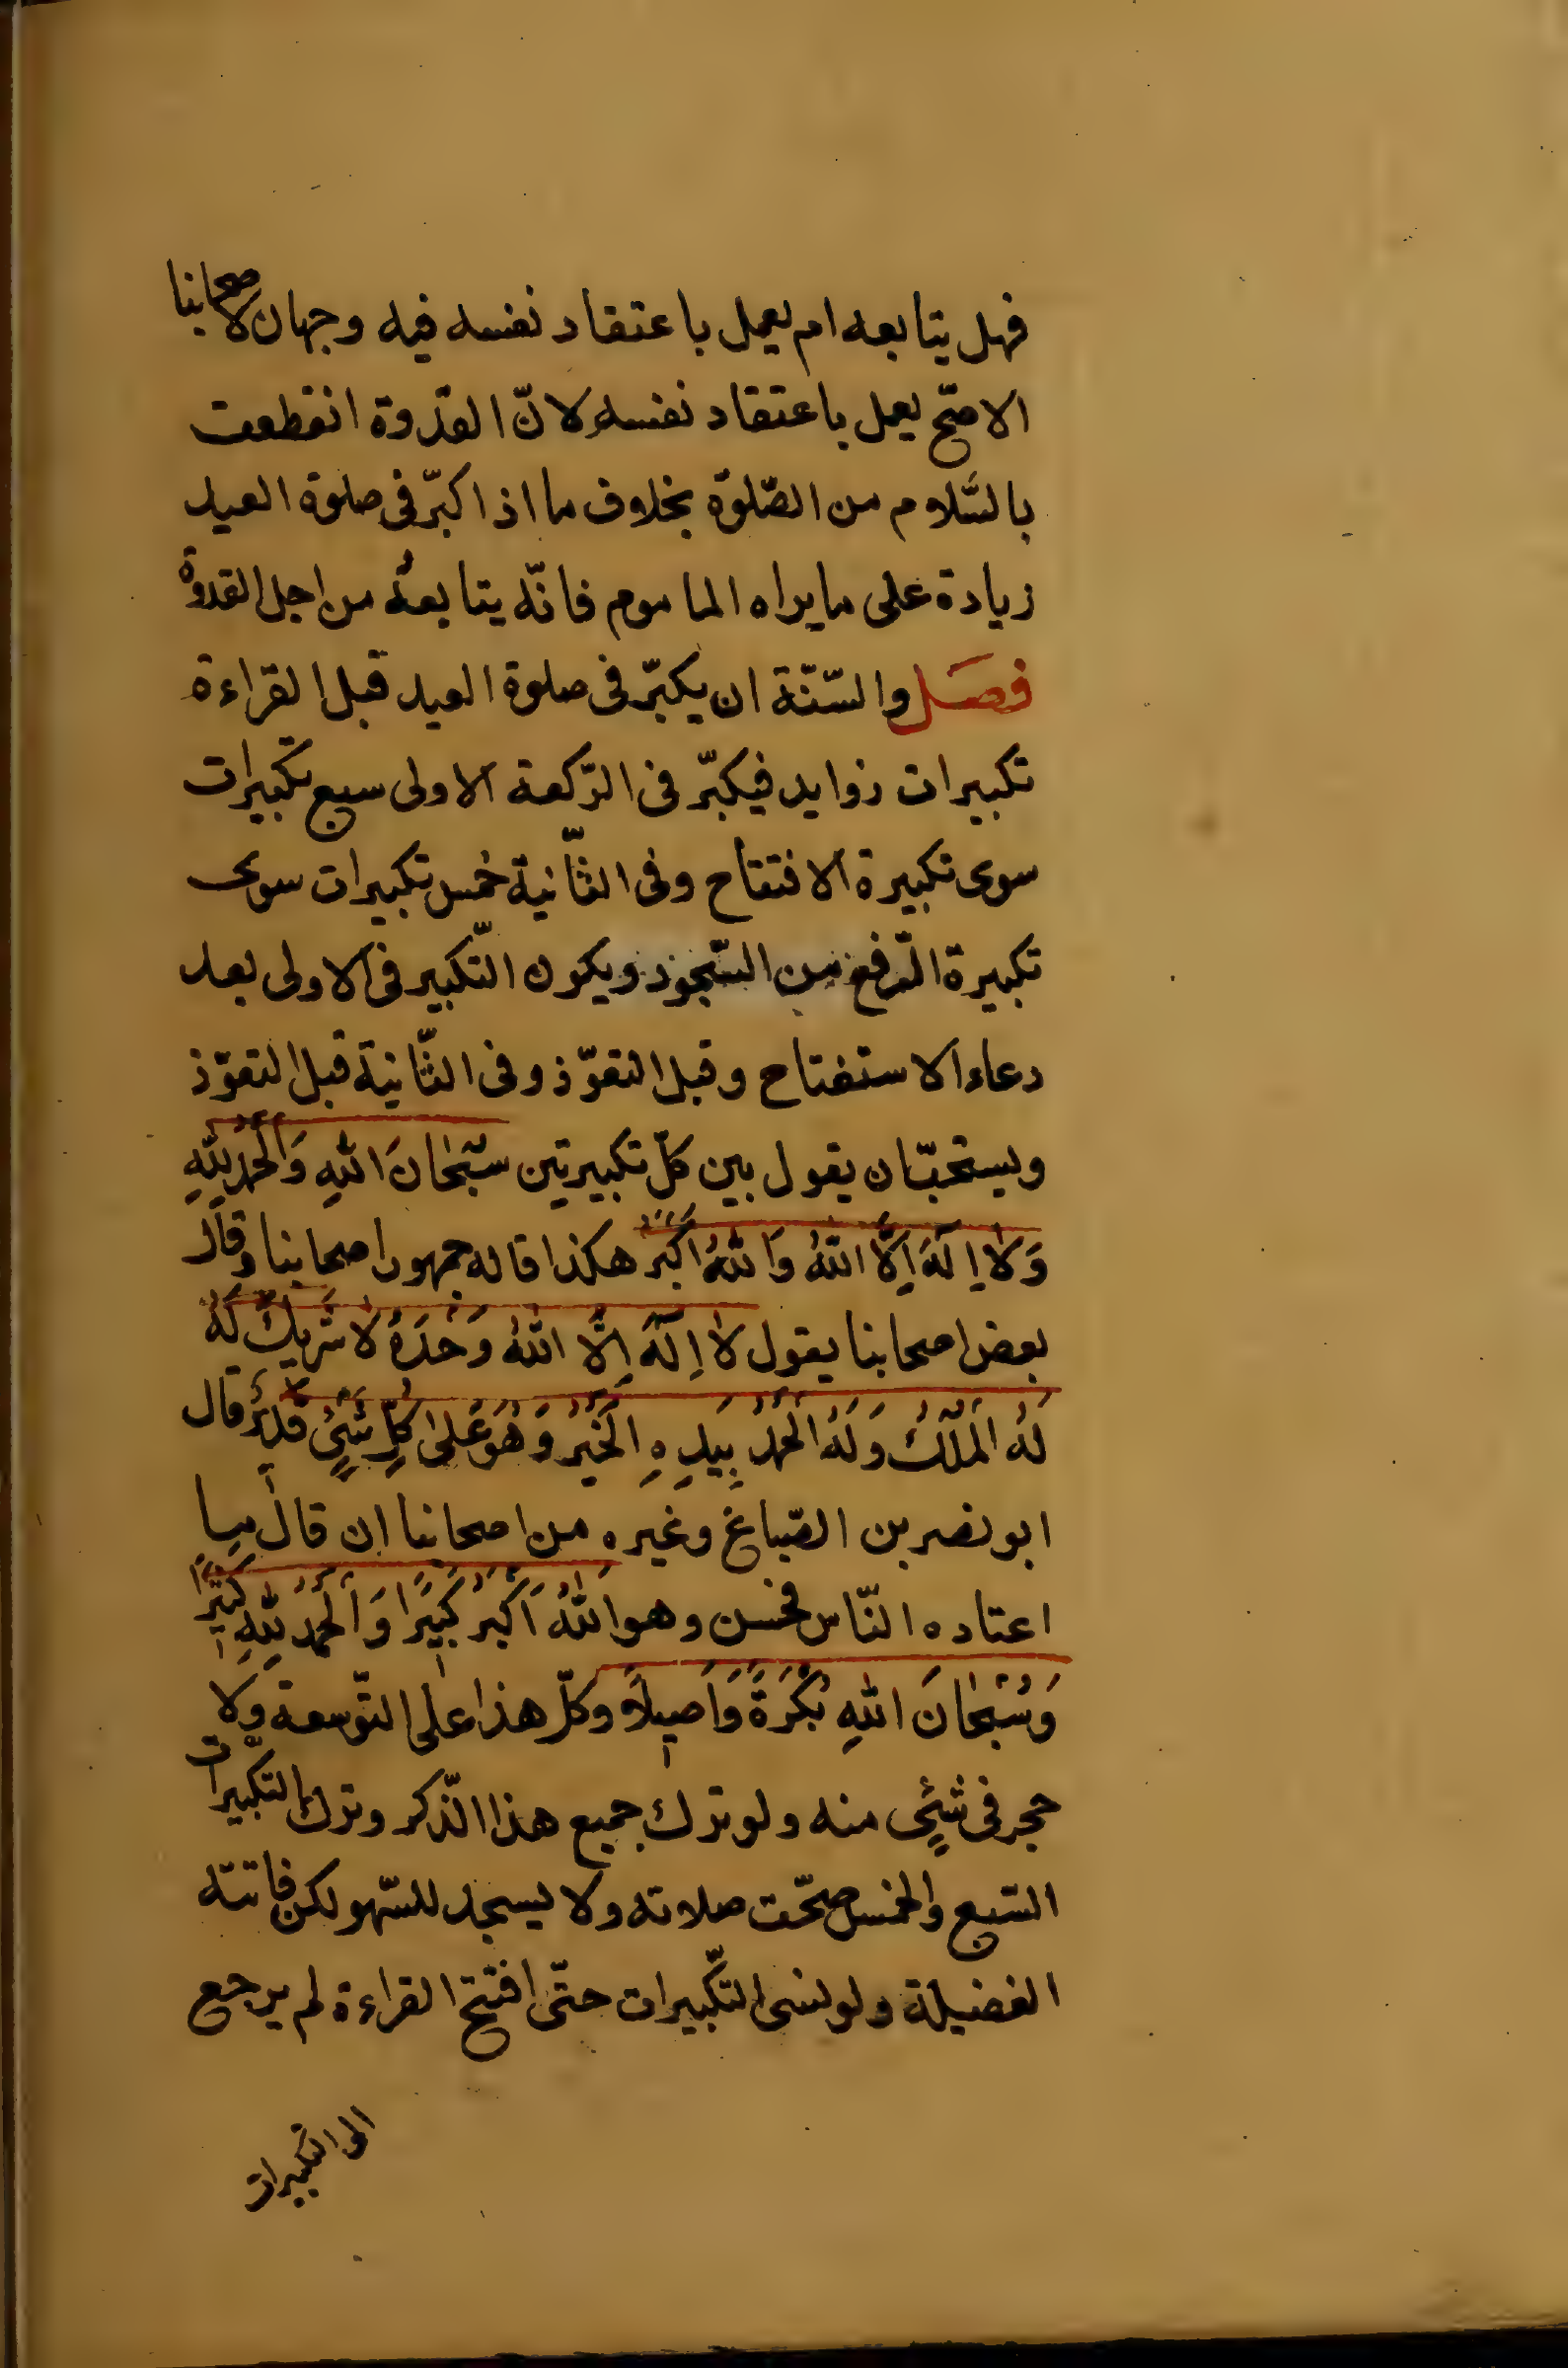 فهل يتابعه ام يعمل باعتقاد نفسه فيه وجهان لاصحابنا
الاصحّ يعمل باعتقاد نفسه لانّ القدوة انقطعت
بالسّلام من الصّلوة بخلاف ما اذا كبّر فى صلوة العيد
زيادة على ما يراه الماموم فانّه يتابعه من اجل القدوة
فصل والسّنّة ان يكبّر فى صلوة العيد قبل القراءة
تكبيرات زوايد فيكبّر فى الرّكعة الاولى سبع تكبيرات
سوى تكبيرة الافتتاح وفى الثّانية خمس تكبيرات سوى
تكبيرة الرّفع من السّجود ويكون التّكبير فى الاولى بعد
دعاء الاستفتاح وقبل التعوّذ وفى الثّانية قبل التعوّذ
ويستحبّ ان يقول بين كلّ تكبيرتين سُبْحَانَ اللهِ وَالْحَمْدُ لِلّٰهِ
وَلَا اِلٰهَ اِلَّا اللهُ وَاللهُ اَكْبَرُ هكذا قاله جمهور اصحابنا وقال
بعض اصحابنا يقول لَا اِلٰهَ اِلَّا اللهُ وَحْدَهُ لَا شَرِيكَ لَهُ
لَهُ الْمُلْكُ وَلَهُ الْحَمْدُ بِيَدِهِ الْخَيْرُ وَهُوَ عَلٰى كُلِّ شَيْءٍ قَدِيْرٌ قال
ابو نصر بن الصّباغ وغيره من اصحابنا ان قال ما
اعتاده النّاس فحسن وهو اَللهُ اَكْبَرُ كَبِيْرًا وَالْحَمْدُ لِلّٰهِ كَثِيْرًا
وَسُبْحَانَ اللهِ بُكْرَةً وَاَصِيلًا وكلّ هذا على التّوسعة ولا
حجر فى شئ منه ولو ترك جميع هذا الذّكر وترك التكبيرات
السّبع والخمس صحّت صلاته ولا يسجد للسّهو لكن فاتته
الفضيلة ولو نسى التّكبيرات حتّى افتتح القراءة لم يرجع
الى التكبيرات